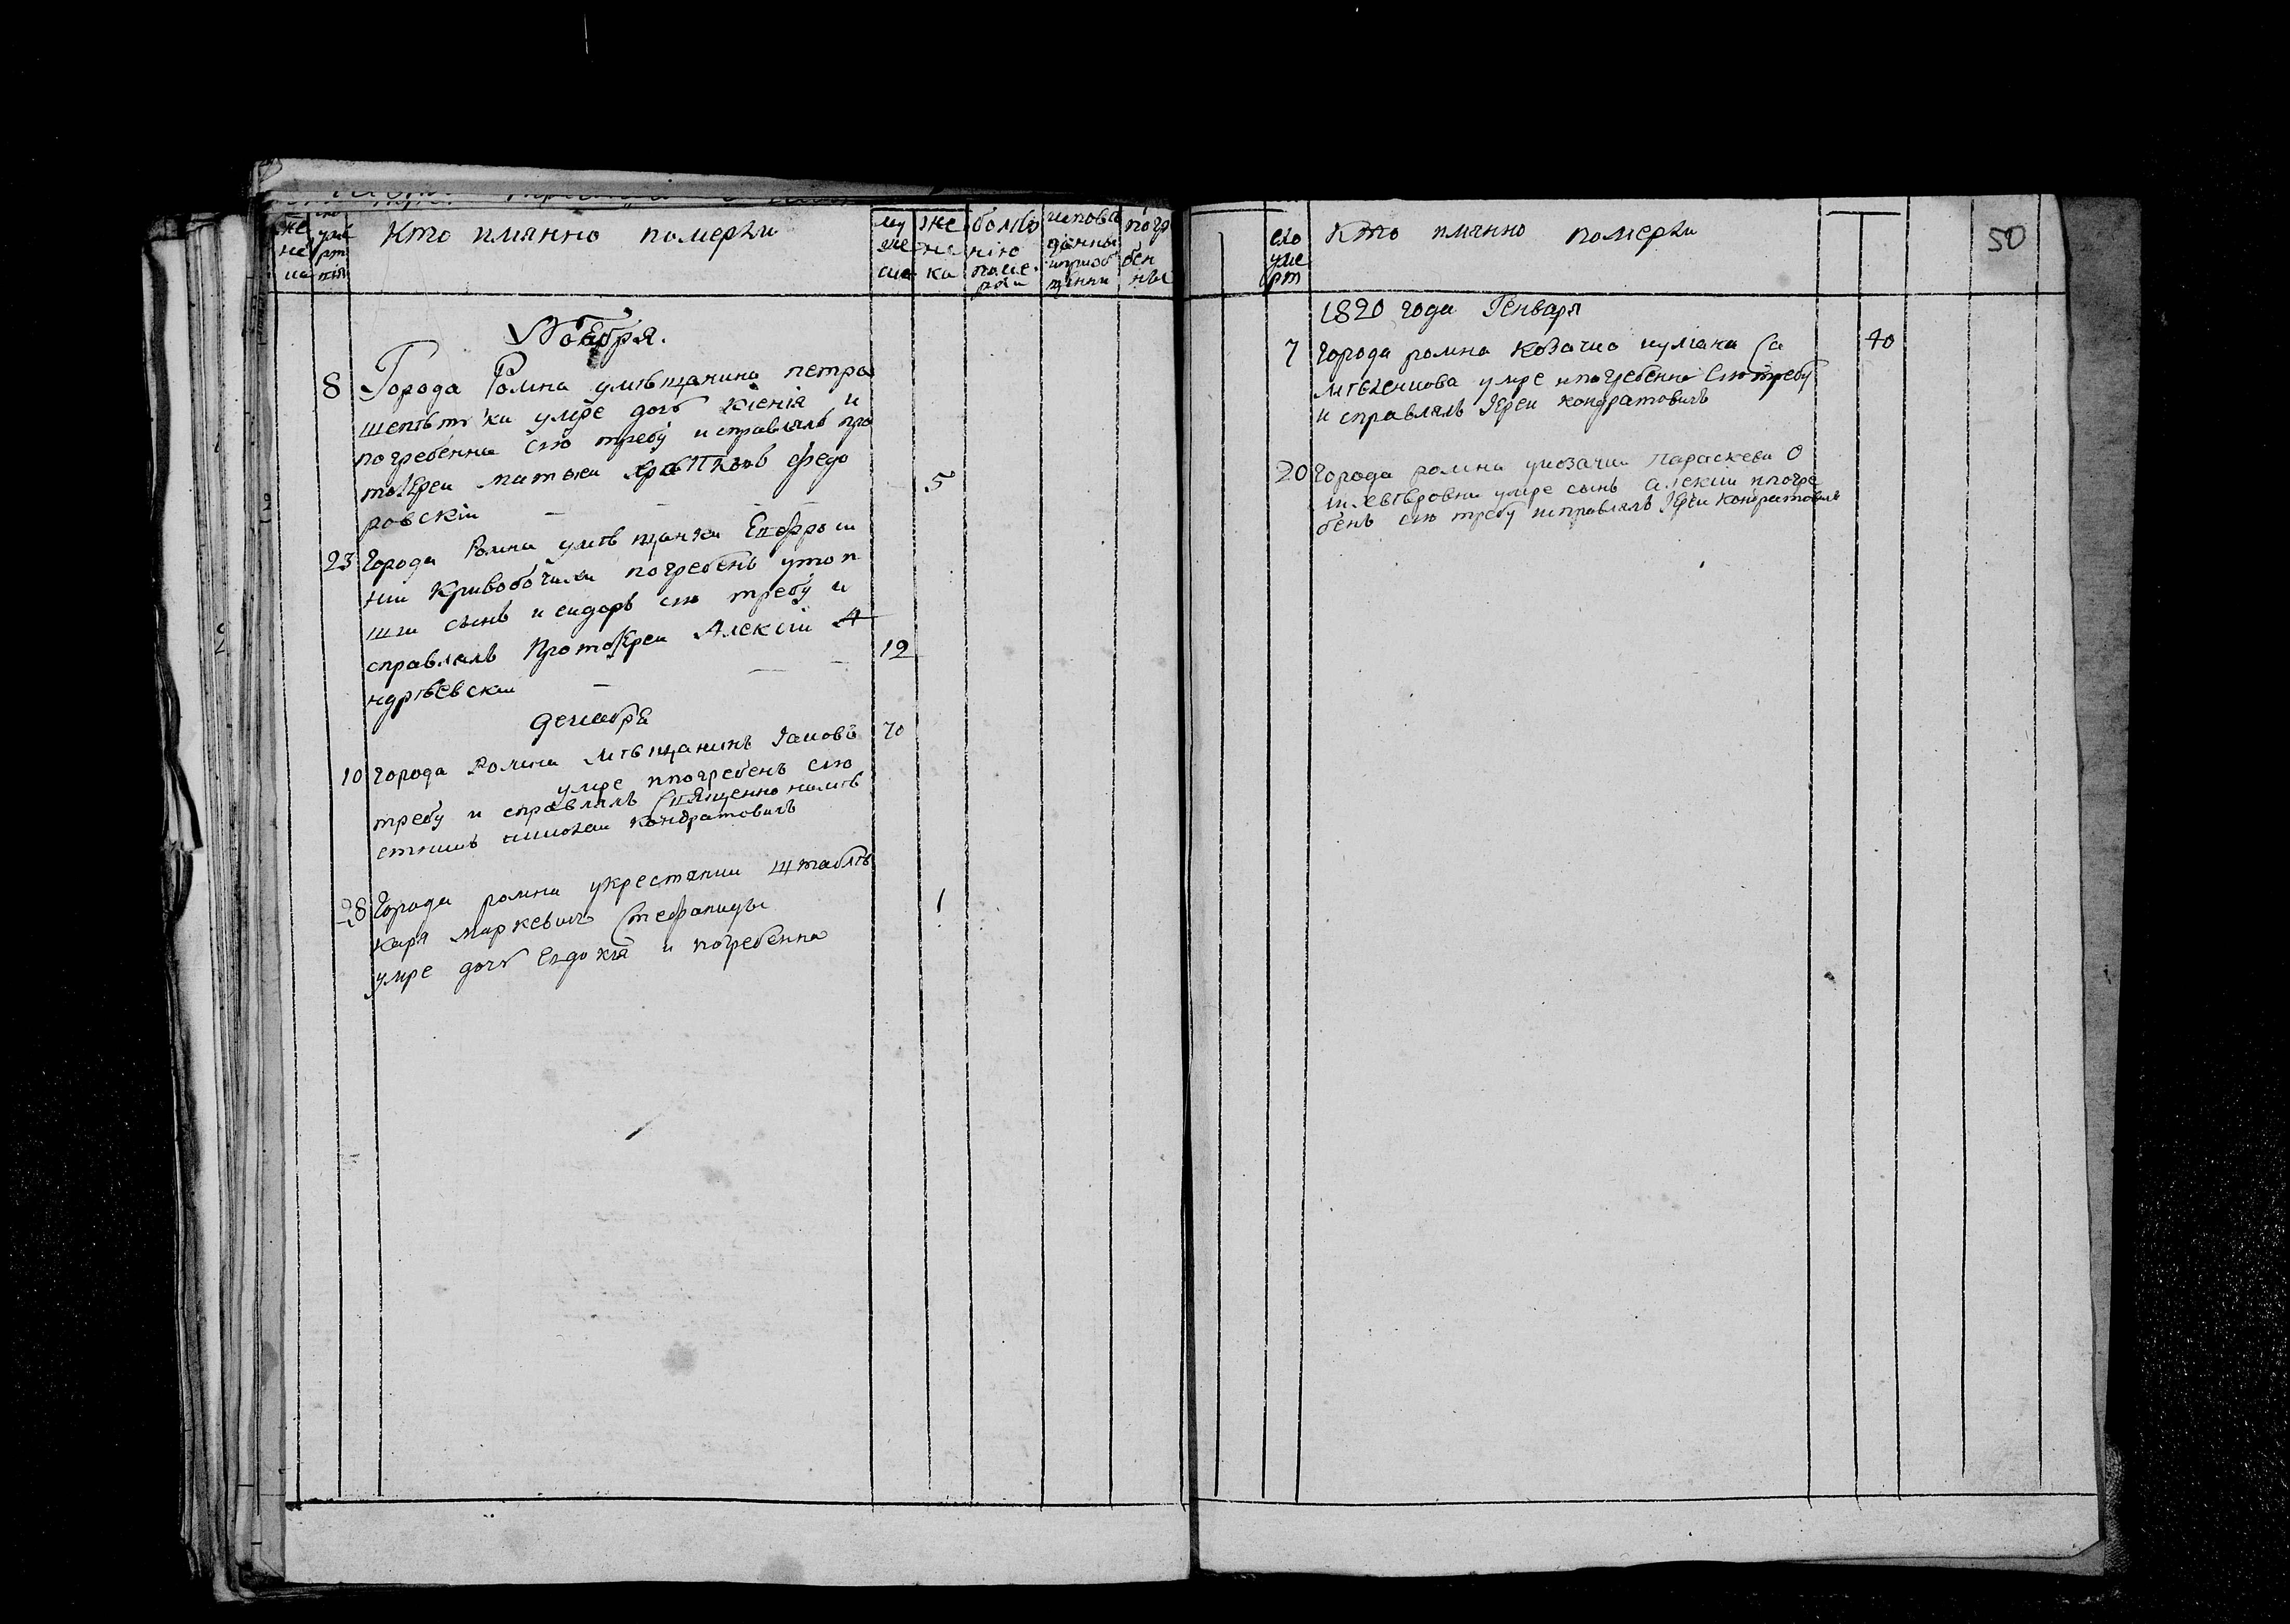 Кто имянно померли
му
же
ска
же
не
ка
болѣ
нію
поме
рли
исповѣ
данны
погр
бен
ны
Ноября.
8 Города Ромна умѣщанина петра
умре дочь ксенія и
погребенна сію требу исправлялъ про
тоІереи федо
ровскій 5
23 Города Ромна умѣщанки Ефроси
ніи погребенъ утоп
ши сынъ исидоръ сію требу и
справлялъ ПротоІереи Алексіи А
ндрѣевскіи 12
декабря
10 города Ромна мѣщанинъ Іаковъ 70
умре ипогребенъ сію
требу и справлялъ Священно намѣ
стникъ кондратовичъ
28 Города ромна укрестянки штаблѣ
каря маркевича Стефаниды 1
умре дочь Евдокія и погребенна
50
его
уме
рт
Кто имянно померли
1820 года Генваря
7 города ромна козачка 40
умре ипогребенна Сію требу
и справлялъ Іереи кондратовичъ
20 города ромна укозачки параскеви
умре сынъ алексіи ипогре
бенъ сію требу исправлялъ Іереи кондратовичъ